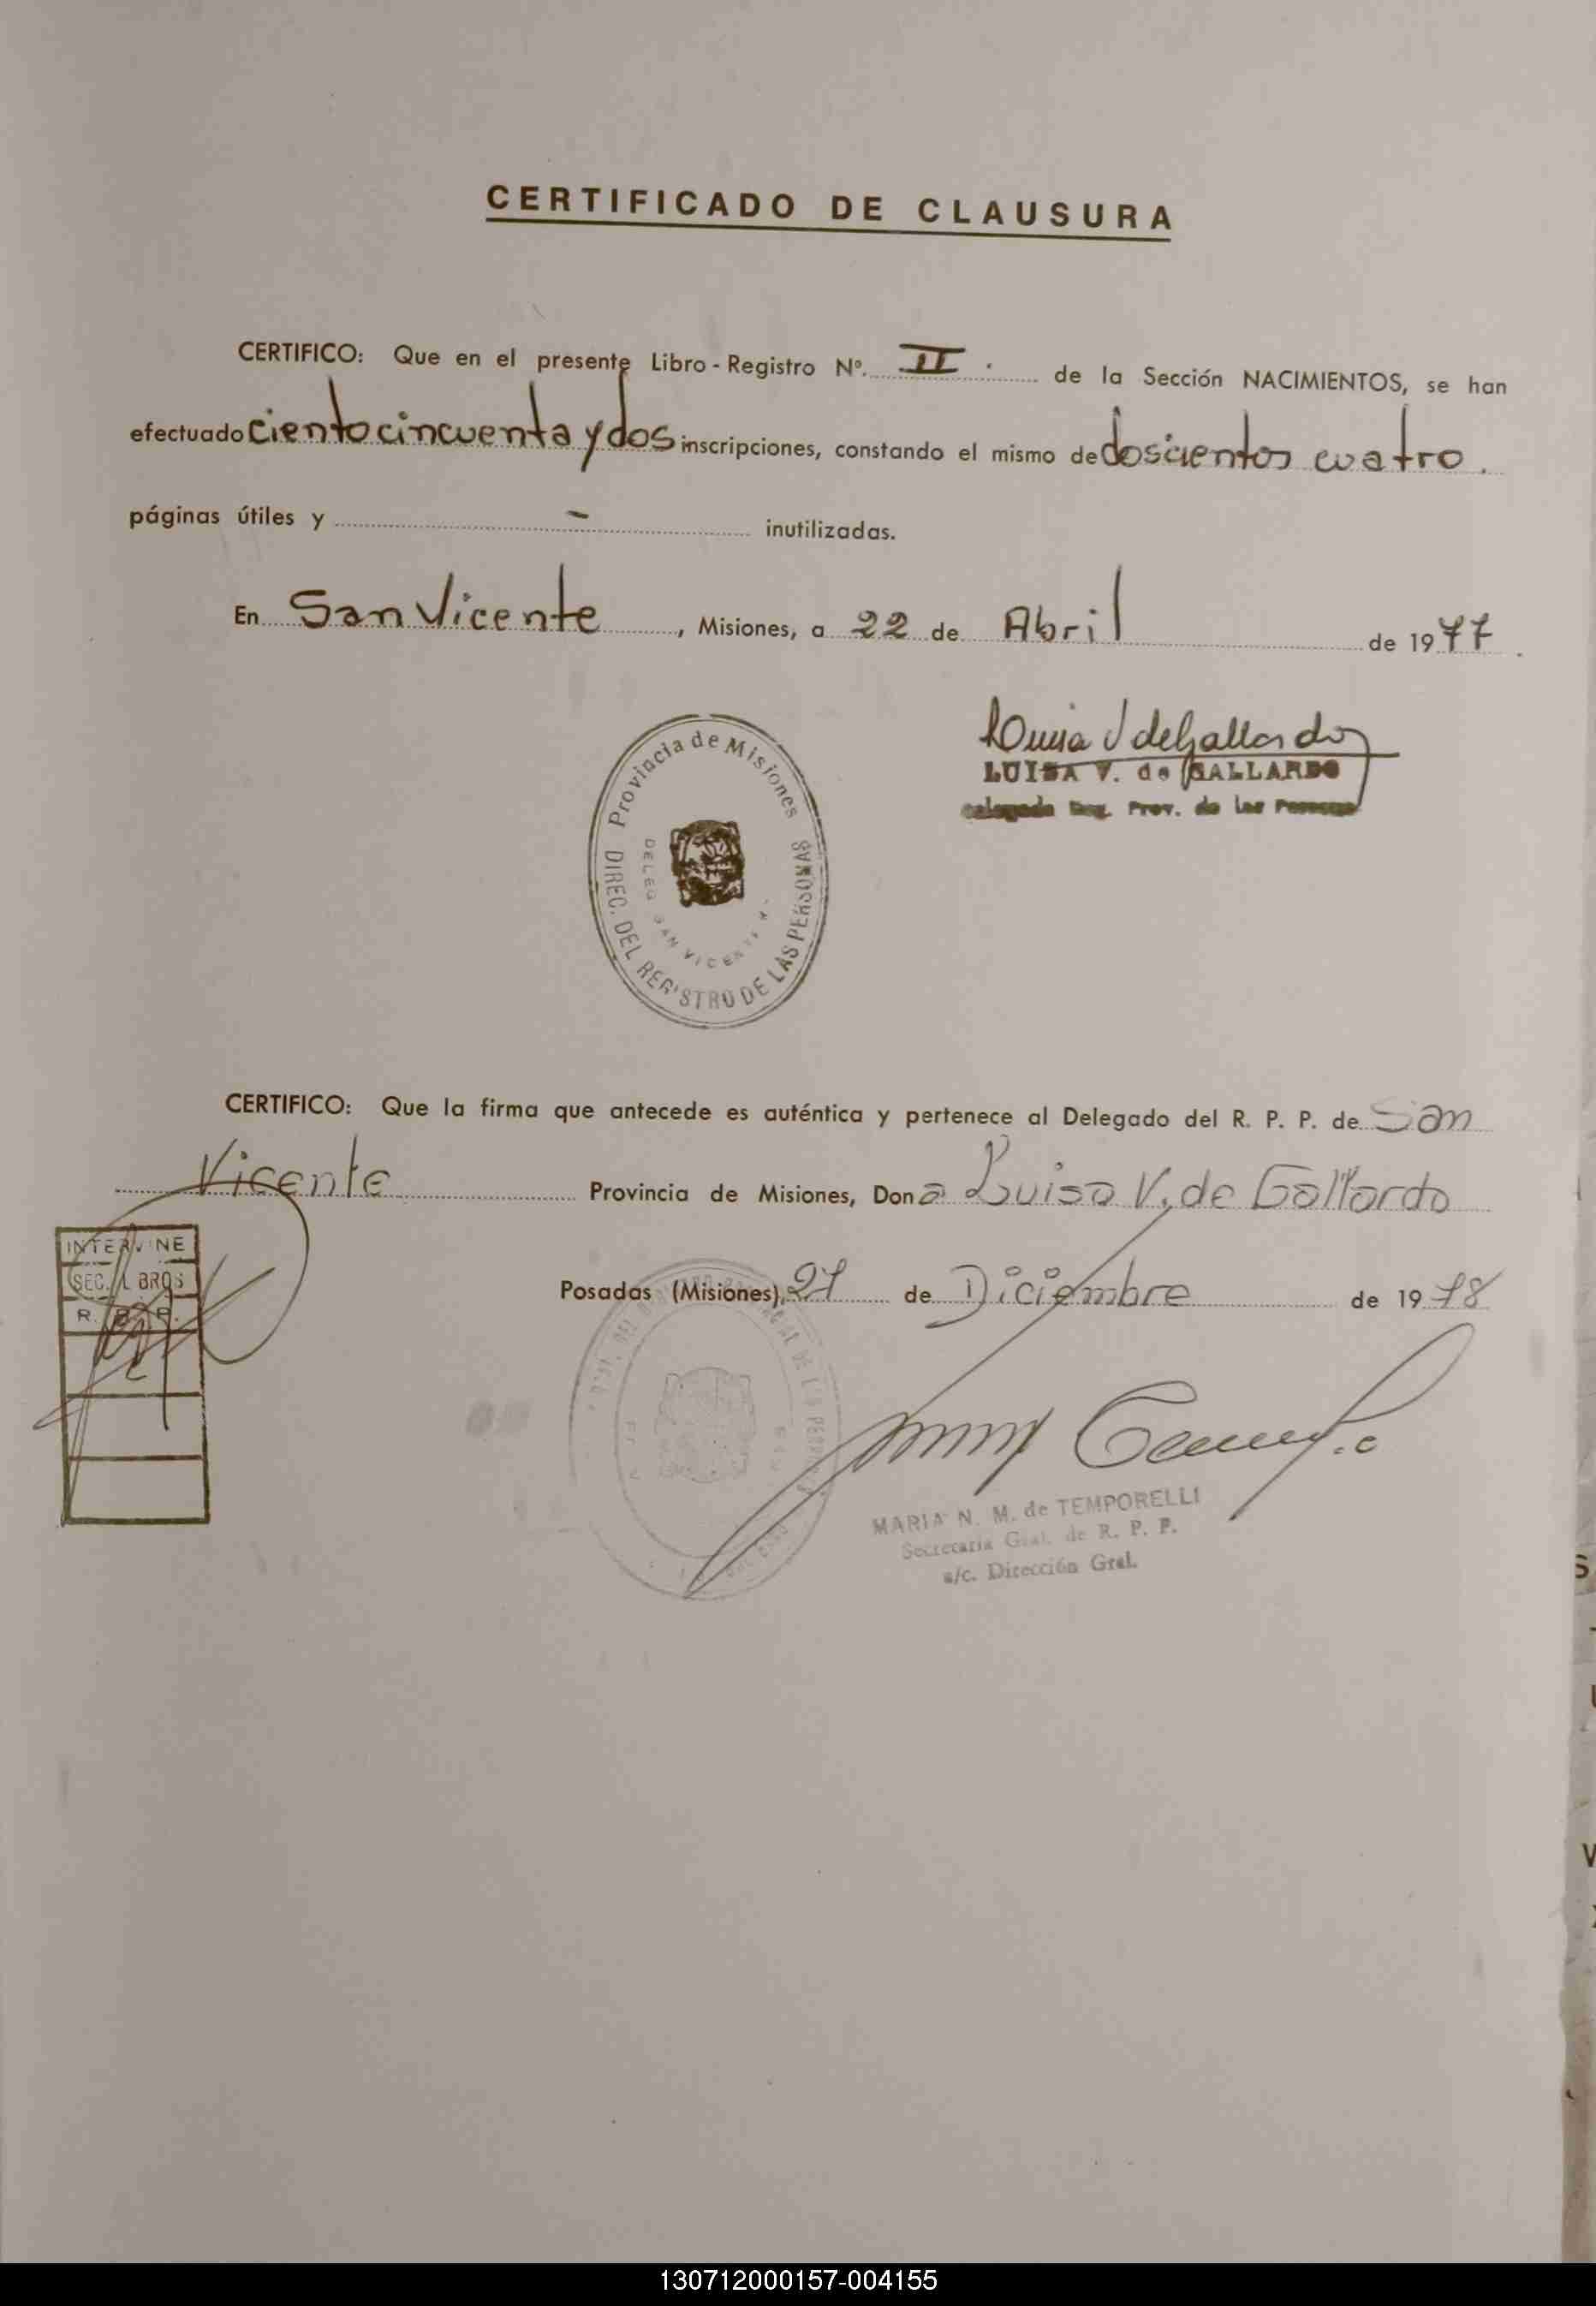 CERTIFICADO DE CLAUSURA
CERTIFICO: Que en el presente Libro - Registro Nº. II . de la Sección NACIMIENTOS, se han
efectuado ciento cincuenta y dos inscripciones, constando el mismo de doscientos cuatro.
páginas útiles y - inutilizadas.
En San Vicente, Misiones, a 22 de Abril de 1977.
Luisa V de Gallardo
LUISA V. de GALLARDO
Reg. Prov. de las Personas
Provincia de Misiones
DELEG SAN VICENTE
DIREC. DEL REGISTRO DE LAS PERSONAS
CERTIFICO: Que la firma que antecede es auténtica y pertenece al Delegado del R. P. P. de San
Vicente Provincia de Misiones, Dona Luisa V. de Gallardo
INTERVINE
SEC. LIBROS
R. P. P.
Posadas (Misiones), 27 de Diciembre de 1978
MARIA N. M. de TEMPORELLI
Secretaria Gral. de R. P. P.
a/c. Dirección Gral.
130712000157-004155